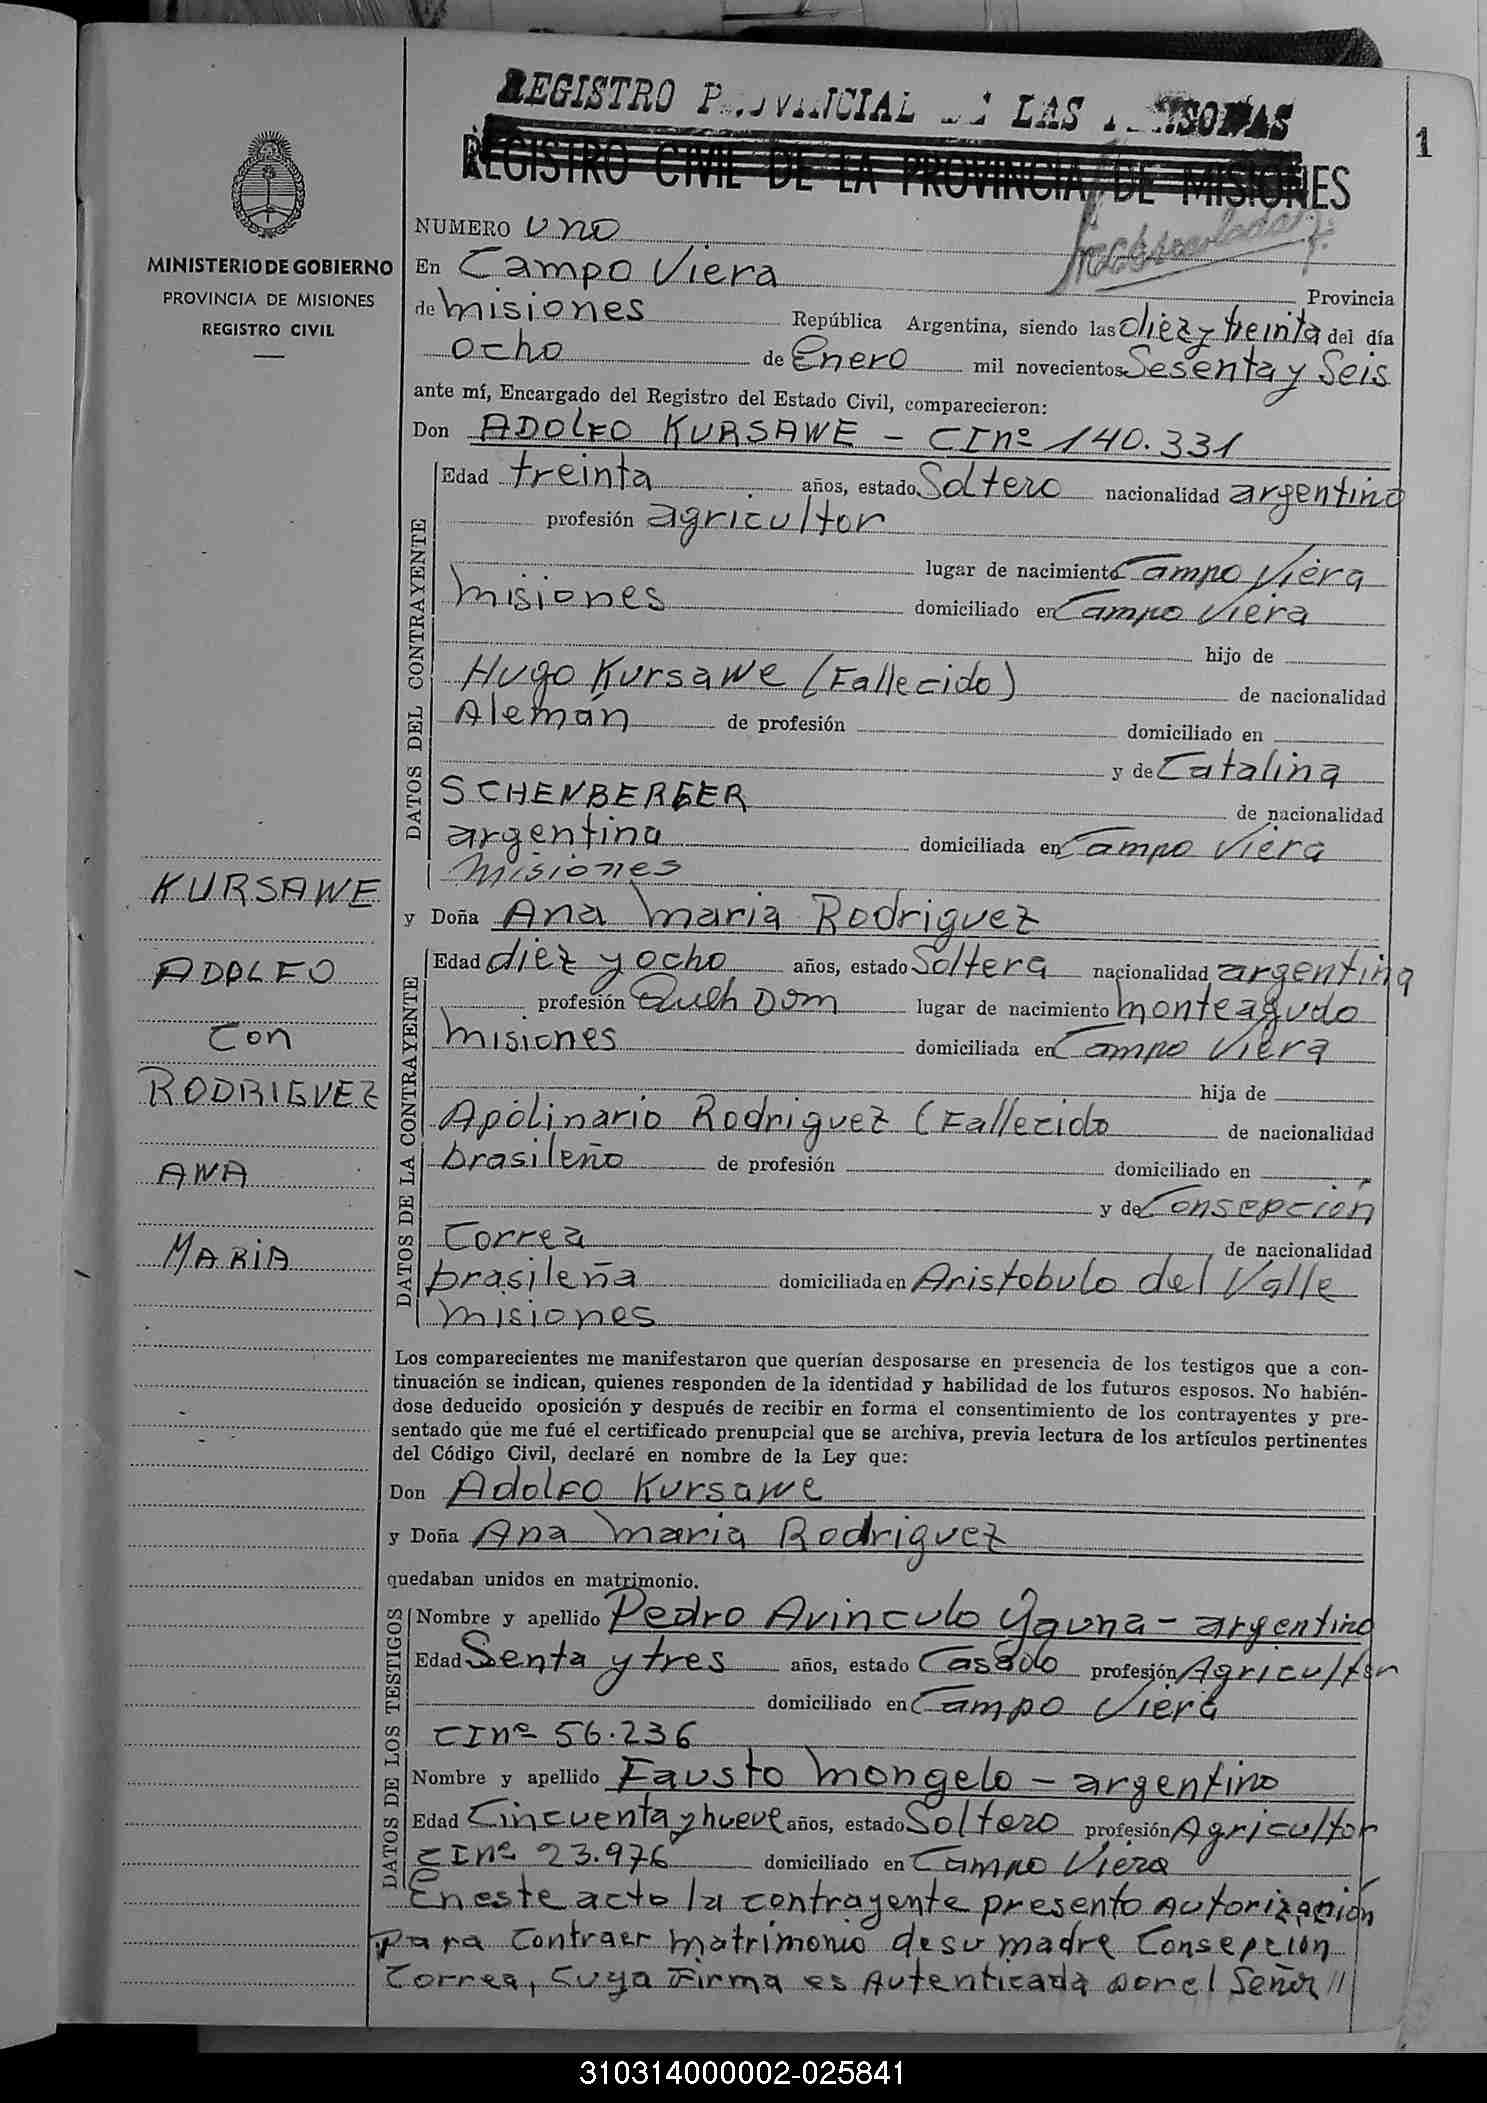 REGISTRO PROVINCIAL DE LAS PERSONAS
REGISTRO CIVIL DE LA PROVINCIA DE MISIONES
1
MINISTERIO DE GOBIERNO
PROVINCIA DE MISIONES
REGISTRO CIVIL
NUMERO uno
En Campo Viera Provincia
de misiones República Argentina, siendo las diez y treinta del día
ocho de Enero mil novecientos Sesenta y Seis
ante mí, Encargado del Registro del Estado Civil, comparecieron:
Don ADOLFO KURSAWE - CI nº 140.331
DATOS DEL CONTRAYENTE
Edad treinta años, estado Soltero nacionalidad argentino
profesión agricultor
lugar de nacimiento Campo Viera
misiones domiciliado en Campo Viera
hijo de
Hugo Kursawe (Fallecido) de nacionalidad
Alemán de profesión domiciliado en
y de Catalina
SCHENBERGER de nacionalidad
argentina domiciliada en Campo Viera
misiones
y Doña Ana maria Rodriguez
DATOS DE LA CONTRAYENTE
Edad diez y ocho años, estado Soltera nacionalidad argentina
profesión Queh Dom lugar de nacimiento monteagudo
misiones domiciliada en Campo Viera
hija de
Apolinario Rodriguez (Fallecido de nacionalidad
brasileño de profesión domiciliado en
y de Consepción
Correa de nacionalidad
brasileña domiciliada en Aristobulo del Valle
misiones
KURSAWE
ADOLFO
Con
RODRIGUEZ
ANA
MARIA
Los comparecientes me manifestaron que querían desposarse en presencia de los testigos que a con-
tinuación se indican, quienes responden de la identidad y habilidad de los futuros esposos. No habién-
dose deducido oposición y después de recibir en forma el consentimiento de los contrayentes y pre-
sentado que me fué el certificado prenupcial que se archiva, previa lectura de los artículos pertinentes
del Código Civil, declaré en nombre de la Ley que:
Don Adolfo Kursawe
y Doña Ana maria Rodriguez
quedaban unidos en matrimonio.
DATOS DE LOS TESTIGOS
Nombre y apellido Pedro Avinculo Yauna - argentino
Edad Senta y tres años, estado Casado profesión Agricultor
domiciliado en Campo Viera
CI nº 56.236
Nombre y apellido Fausto mongelo - argentino
Edad Cincuenta y nueve años, estado Soltero profesión Agricultor
CI nº 23.976 domiciliado en Campo Viera
En este acto la contrayente presento Autorización
para contraer matrimonio de su madre Consepcion
Correa, cuya Firma es Autenticada por el Señor //
310314000002-025841